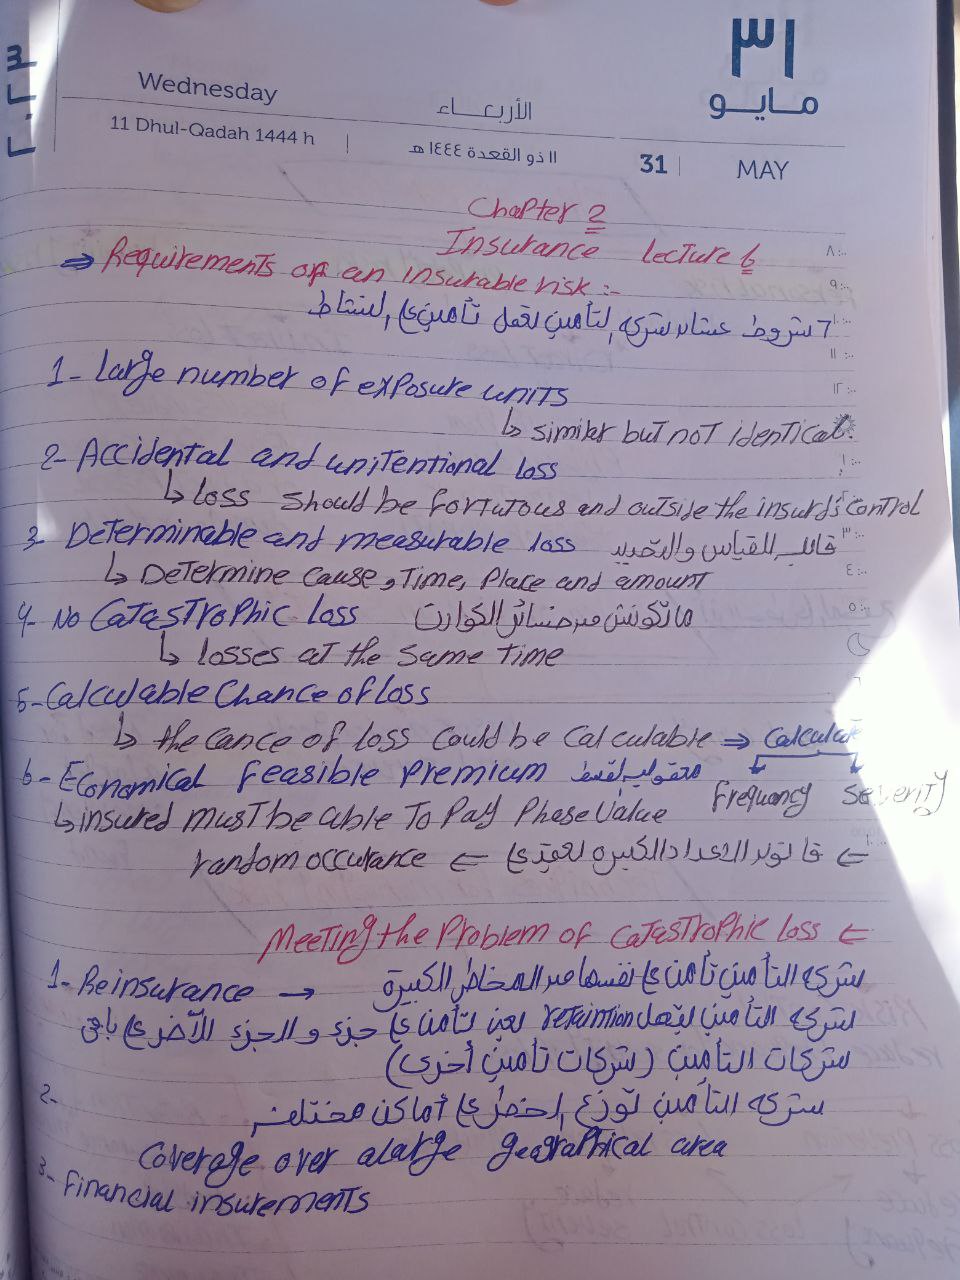 ٣١
مايو
Wednesday
الأربعاء
11 Dhul-Qadah 1444 h
١١ ذو القعدة ١٤٤٤ هـ
31
MAY
Chapter 2
Insurance lecture 6
⇒ Requirements of an insurable risk :-
٦ شروط عشان شركه التأمين تعمل تأمين ع النشاط
1- Large number of exposure units
↳ similar but not identical.
2- Accidental and unitentional loss
↳ loss should be fortutous and outside the insurd's control
3- Determinable and measurable loss قابل للقياس والتحديد
↳ Determine cause, time, place and amount
4- No catastrophic loss ماتكونش من خسائر الكوارث
↳ losses at the same time
5- Calculable chance of loss
↳ the cance of loss could be calculable ⇒
frequency severity
6- Economical feasible premium
↳ insured must be able to pay phase value
random occurance ⇐ الاعداد الكبيره ⇐
Meeting the problem of catastrophic loss ⇐
1- Reinsurance → شركه التأمين تأمن ع نفسها من المخاطر الكبيرة
شركه التأمين retaintion يعني تأمن ع جزء و الجزء الآخر ع باقي
شركات التأمين (شركات تأمين أخرى)
2- شركه التأمين توزع الخطر ع أماكن مختلفه
Coverage over a large geographical area
3- Financial insurements